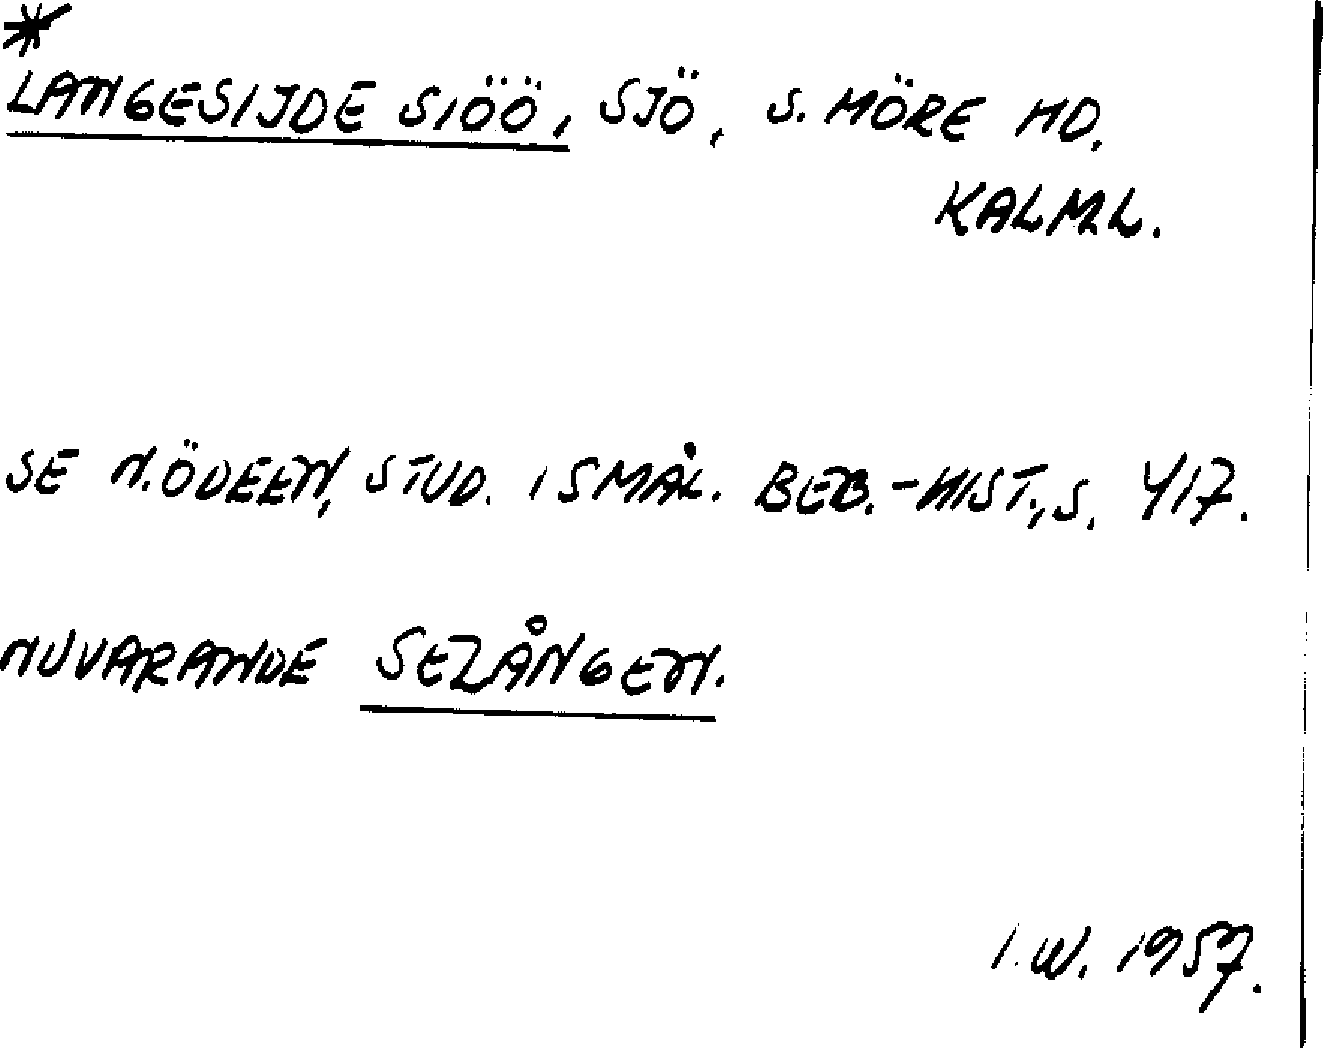 *
LANGESIJDE SIÖÖ, SJÖ, S. MÖRE HD.
KALML.
SE N. ÖDEEN, STUD. I SMÅL. BEB.-HIST., S. 417.
NUVARANDE SEZÅNGEN.
I.W. 1957.